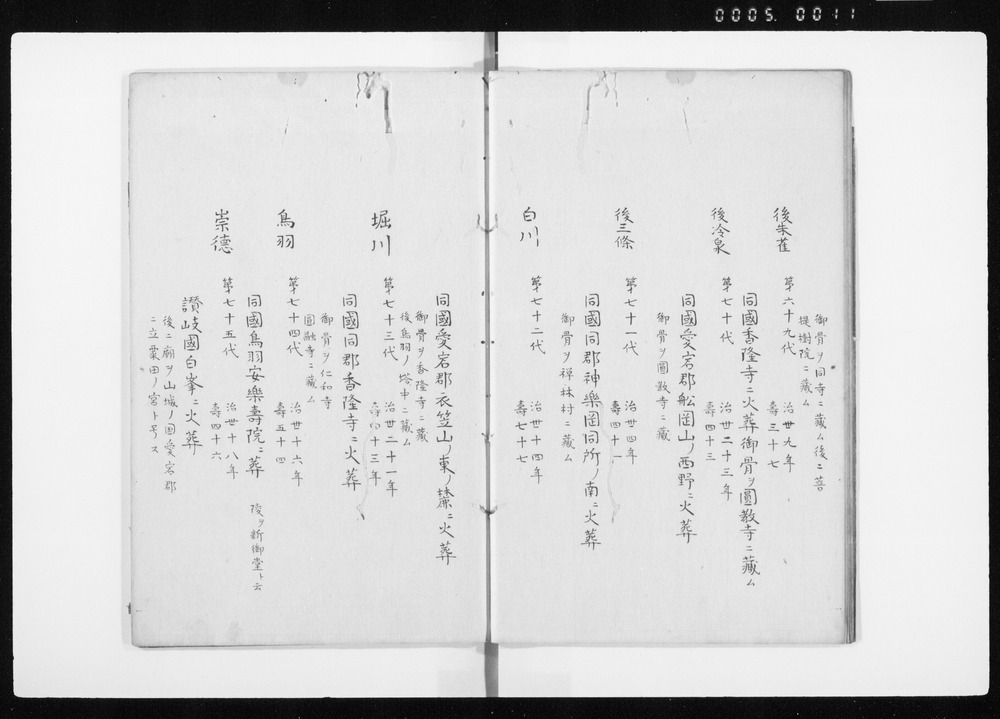 0005. 0011
御骨ヲ同寺ニ藏ム後ニ菩
提樹院ニ藏ム
後朱雀
第六十九代
治世九年
壽三十七
同國香隆寺ニ火葬御骨ヲ圓教寺ニ藏ム
後冷泉
第七十代
治世二十三年
壽四十三
同國愛宕郡舩岡山ノ西野ニ火葬
御骨ヲ圓教寺ニ藏
後三條
第七十一代
治世四年
壽四十一
同國同郡神樂岡同所ノ南ニ火葬
御骨ヲ禅林村ニ藏ム
白川
第七十二代
治世十四年
壽七十七
同國愛宕郡衣笠山ノ東ノ麓ニ火葬
御骨ヲ香隆寺ニ藏
後鳥羽ノ塔中ニ藏ム
堀川
第七十三代
治世二十一年
十三年
同國同郡香隆寺ニ火葬
御骨ヲ仁和寺
圓融寺ニ藏ム
鳥羽
第七十四代
治世十六年
壽五十四
同國鳥羽安樂壽院ニ葬
陵ヲ新御堂ト云
崇德
第七十五代
治世十八年
壽四十六
讃岐國白峯ニ火葬
後ニ廟ヲ山城ノ國愛宕郡
ニ立粟田ノ宮ト号ス